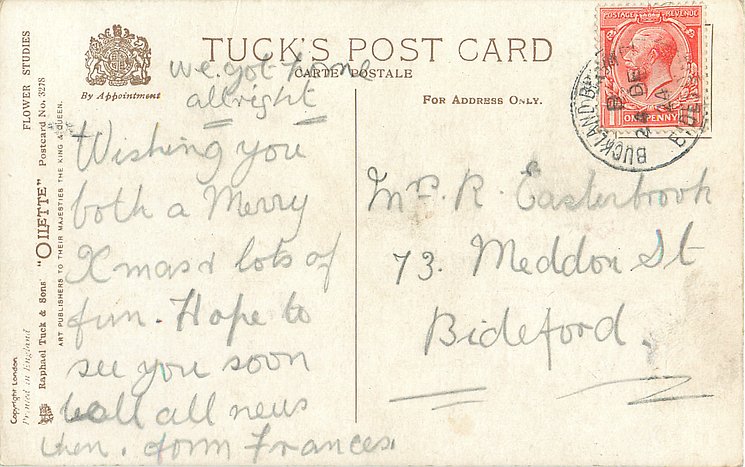 FLOWER STUDIES
Postcard No. 3228
"OILETTE"
Raphael Tuck & Sons'
ART PUBLISHERS TO THEIR MAJESTIES THE KING & QUEEN.
Copyright London
Printed in England
By Appointment
TUCK'S POST CARD
CARTE POSTALE
FOR ADDRESS ONLY.
we got home
allright
Wishing you
both a Merry
Xmas & lots of
fun. Hope to
see you soon
tell all news
then. form Frances.
POSTAGE REVENUE
1 ONE PENNY 1
BUCKLAND BR
24 DE
24
Mr. R. Easterbrook
73. Meddon St
Bideford.